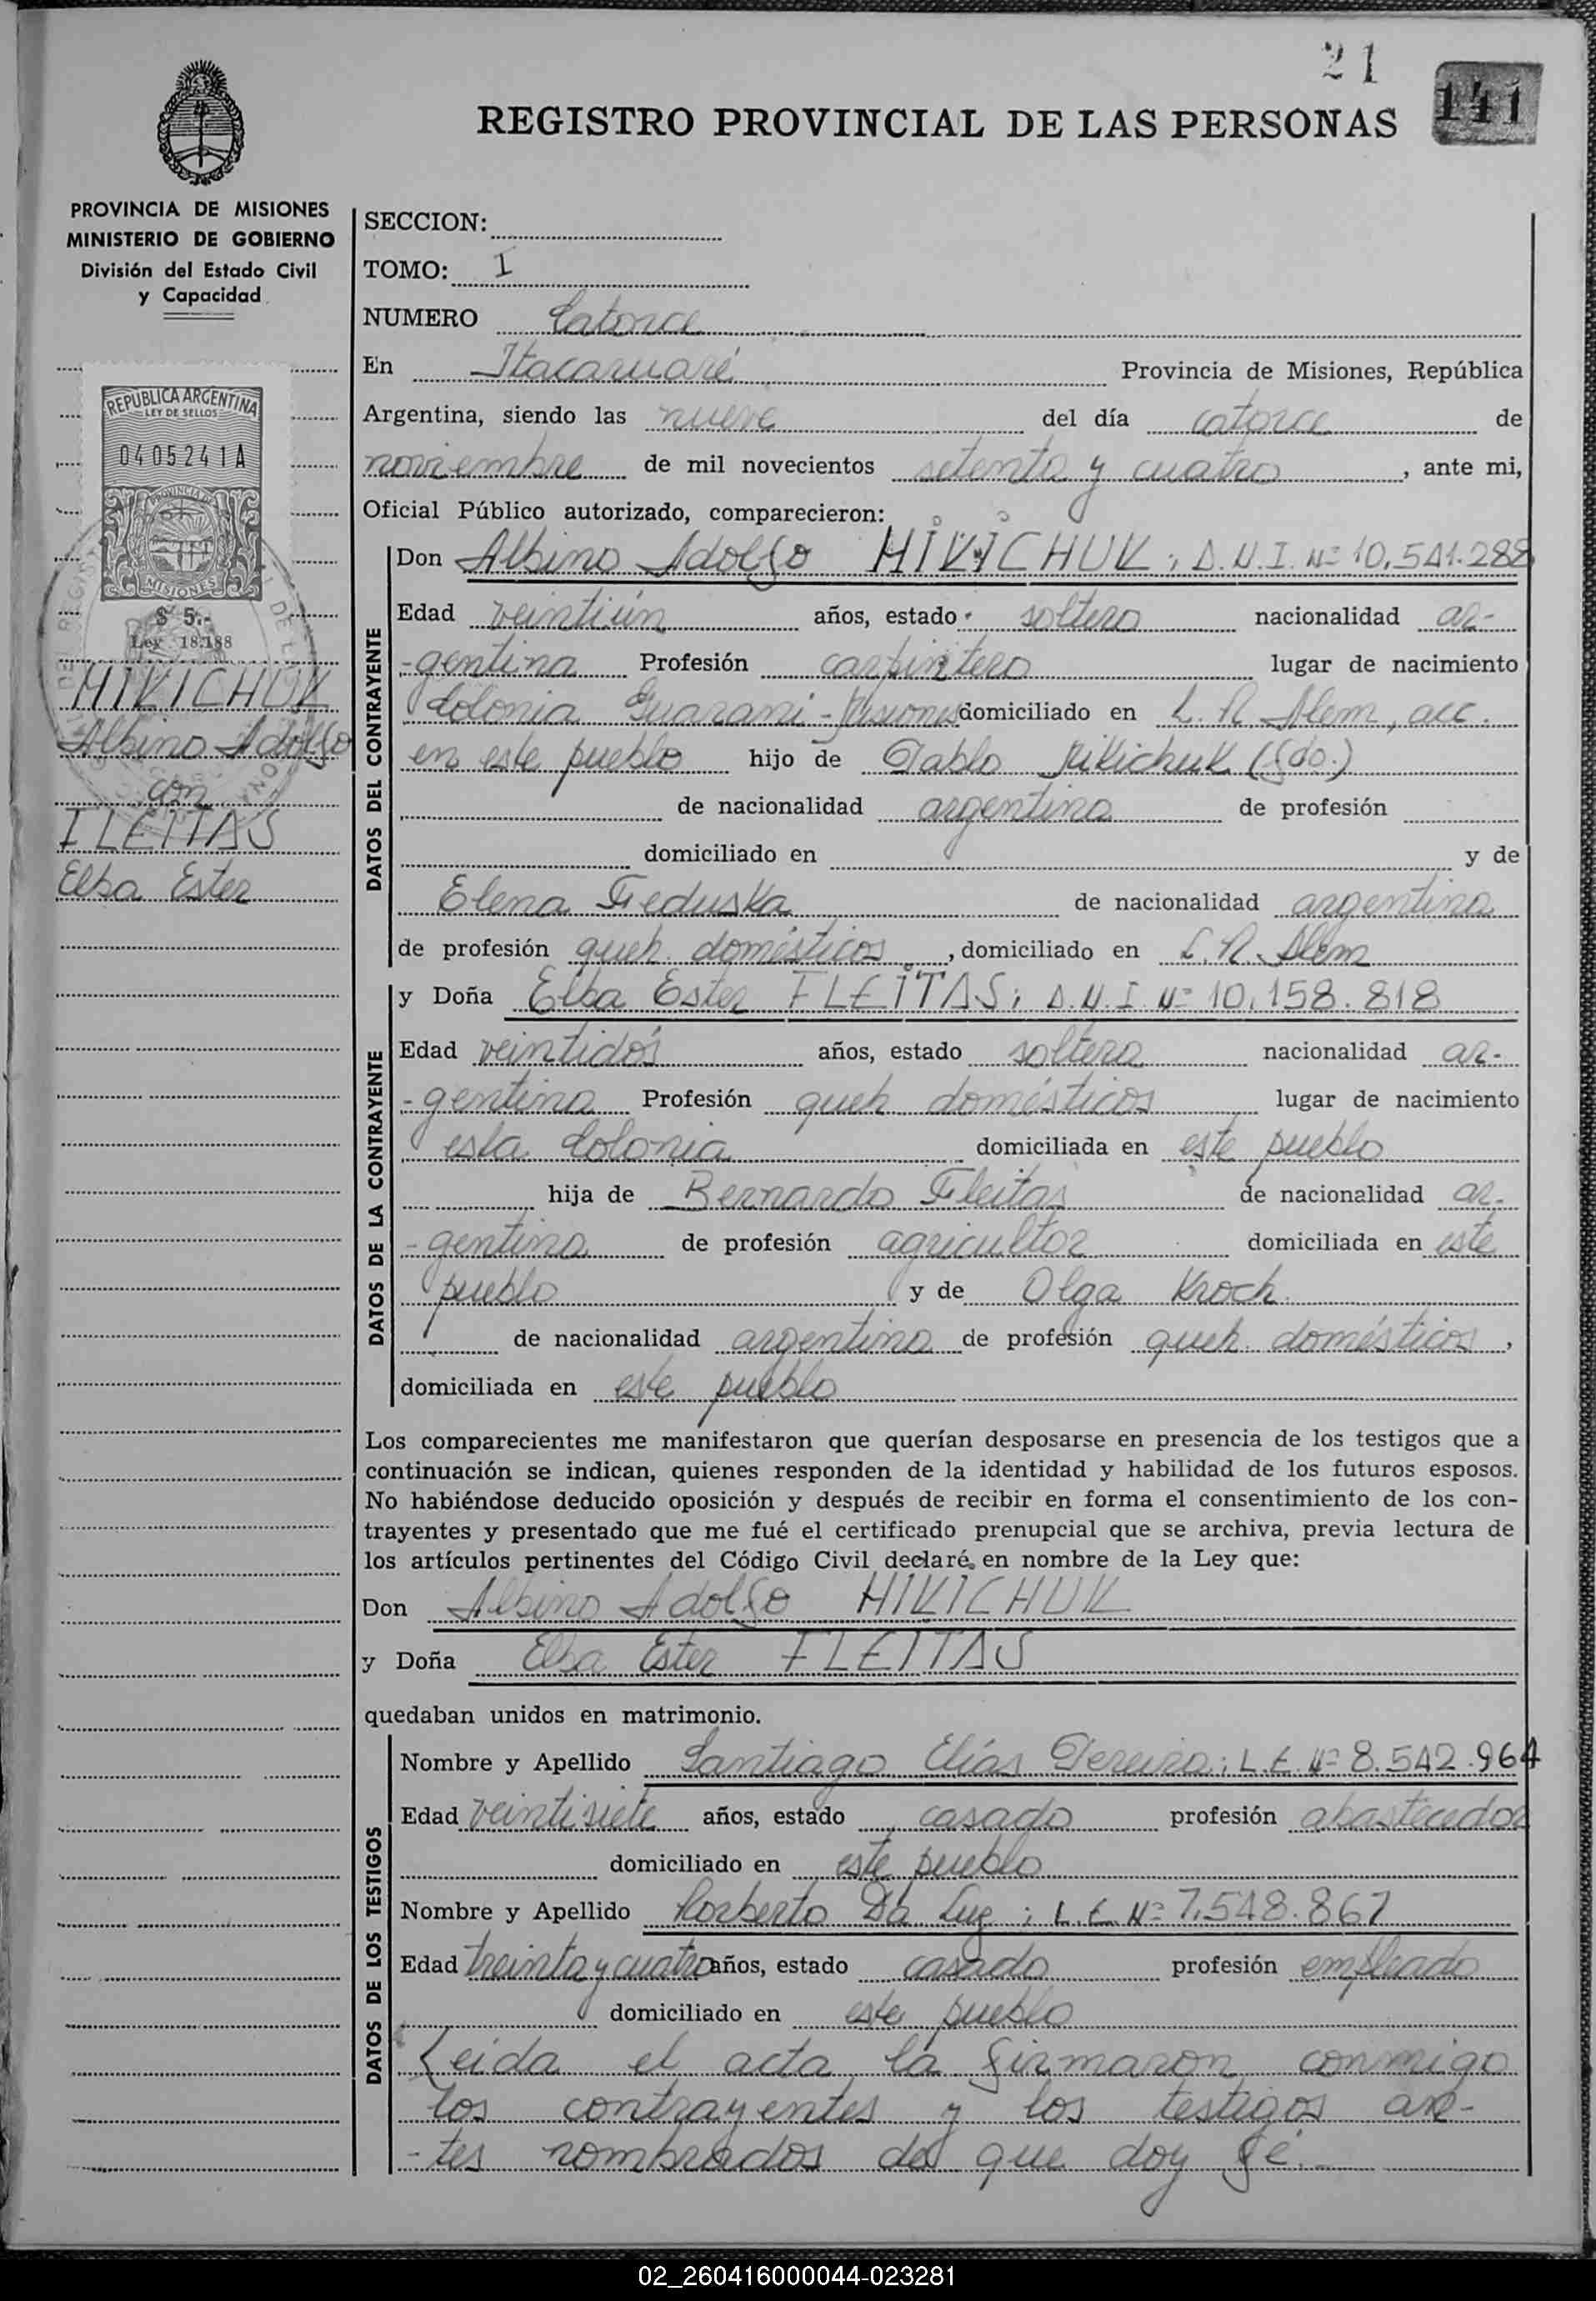 21
141
REGISTRO PROVINCIAL DE LAS PERSONAS
PROVINCIA DE MISIONES
MINISTERIO DE GOBIERNO
División del Estado Civil
y Capacidad
REPUBLICA ARGENTINA
LEY DE SELLOS
0405241A
PROVINCIA DE
MISIONES
$ 5.-
Ley 18.188
MIKICHUK
Albino Adolfo
con
FLEITAS
Elba Ester
SECCION:
TOMO: I
NUMERO Catorce
En Itacaruaré Provincia de Misiones, República
Argentina, siendo las nueve del día catorce de
noviembre de mil novecientos setenta y cuatro, ante mi,
Oficial Público autorizado, comparecieron:
DATOS DEL CONTRAYENTE
Don Albino Adolfo MIKICHUK; D.N.I. Nº 10.541.288
Edad veintiún años, estado soltero nacionalidad ar-
-gentina Profesión carpintero lugar de nacimiento
Colonia Guaraní - Misiones domiciliado en L. N. Alem, acc.
en este pueblo hijo de Pablo Mikichuk (fdo.)
de nacionalidad argentina de profesión
domiciliado en y de
Elena Feduska de nacionalidad argentina
de profesión queh. domésticos, domiciliado en L. N. Alem
DATOS DE LA CONTRAYENTE
y Doña Elba Ester FLEITAS; D.N.I. Nº 10.158.818
Edad veintidós años, estado soltera nacionalidad ar-
-gentina Profesión queh. domésticos lugar de nacimiento
esta Colonia domiciliada en este pueblo
hija de Bernardo Fleitas de nacionalidad ar-
-gentina de profesión agricultor domiciliada en este
pueblo y de Olga Kroch
de nacionalidad argentina de profesión queh. domésticos,
domiciliada en este pueblo
Los comparecientes me manifestaron que querían desposarse en presencia de los testigos que a
continuación se indican, quienes responden de la identidad y habilidad de los futuros esposos.
No habiéndose deducido oposición y después de recibir en forma el consentimiento de los con-
trayentes y presentado que me fué el certificado prenupcial que se archiva, previa lectura de
los artículos pertinentes del Código Civil declaré en nombre de la Ley que:
Don Albino Adolfo MIKICHUK
y Doña Elba Ester FLEITAS
quedaban unidos en matrimonio.
DATOS DE LOS TESTIGOS
Nombre y Apellido Santiago Elías Pereira; L.E. Nº 8.542.964
Edad veintisiete años, estado casado profesión abastecedor
domiciliado en este pueblo
Nombre y Apellido Norberto Da Luz; L.E. Nº 7.548.867
Edad treinta y cuatro años, estado casado profesión empleado
domiciliado en este pueblo
Leida el acta la firmaron conmigo
los contrayentes y los testigos an-
-tes nombrados de que doy fé.
02_260416000044-023281